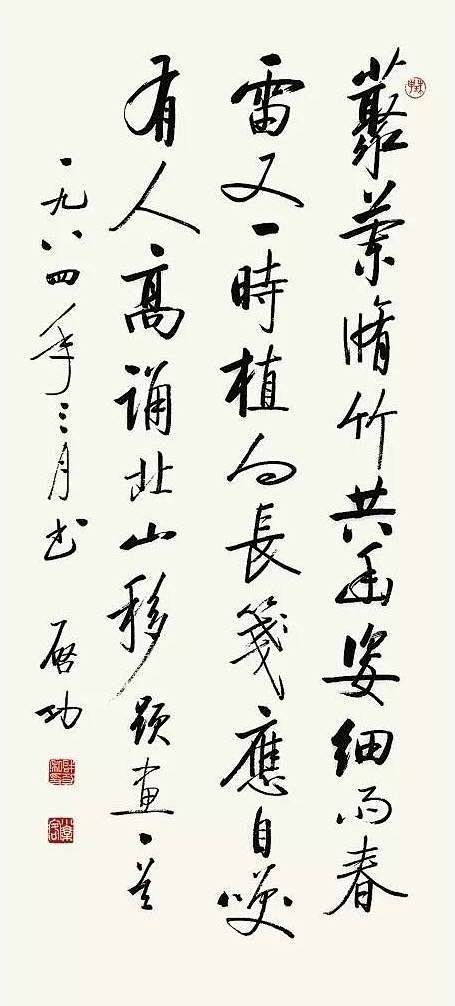 藂蘭脩竹共幽姿細雨春
雷又一時植向長箋應自咲
有人高誦北山移題畫一首
一九八四年三月書 启功